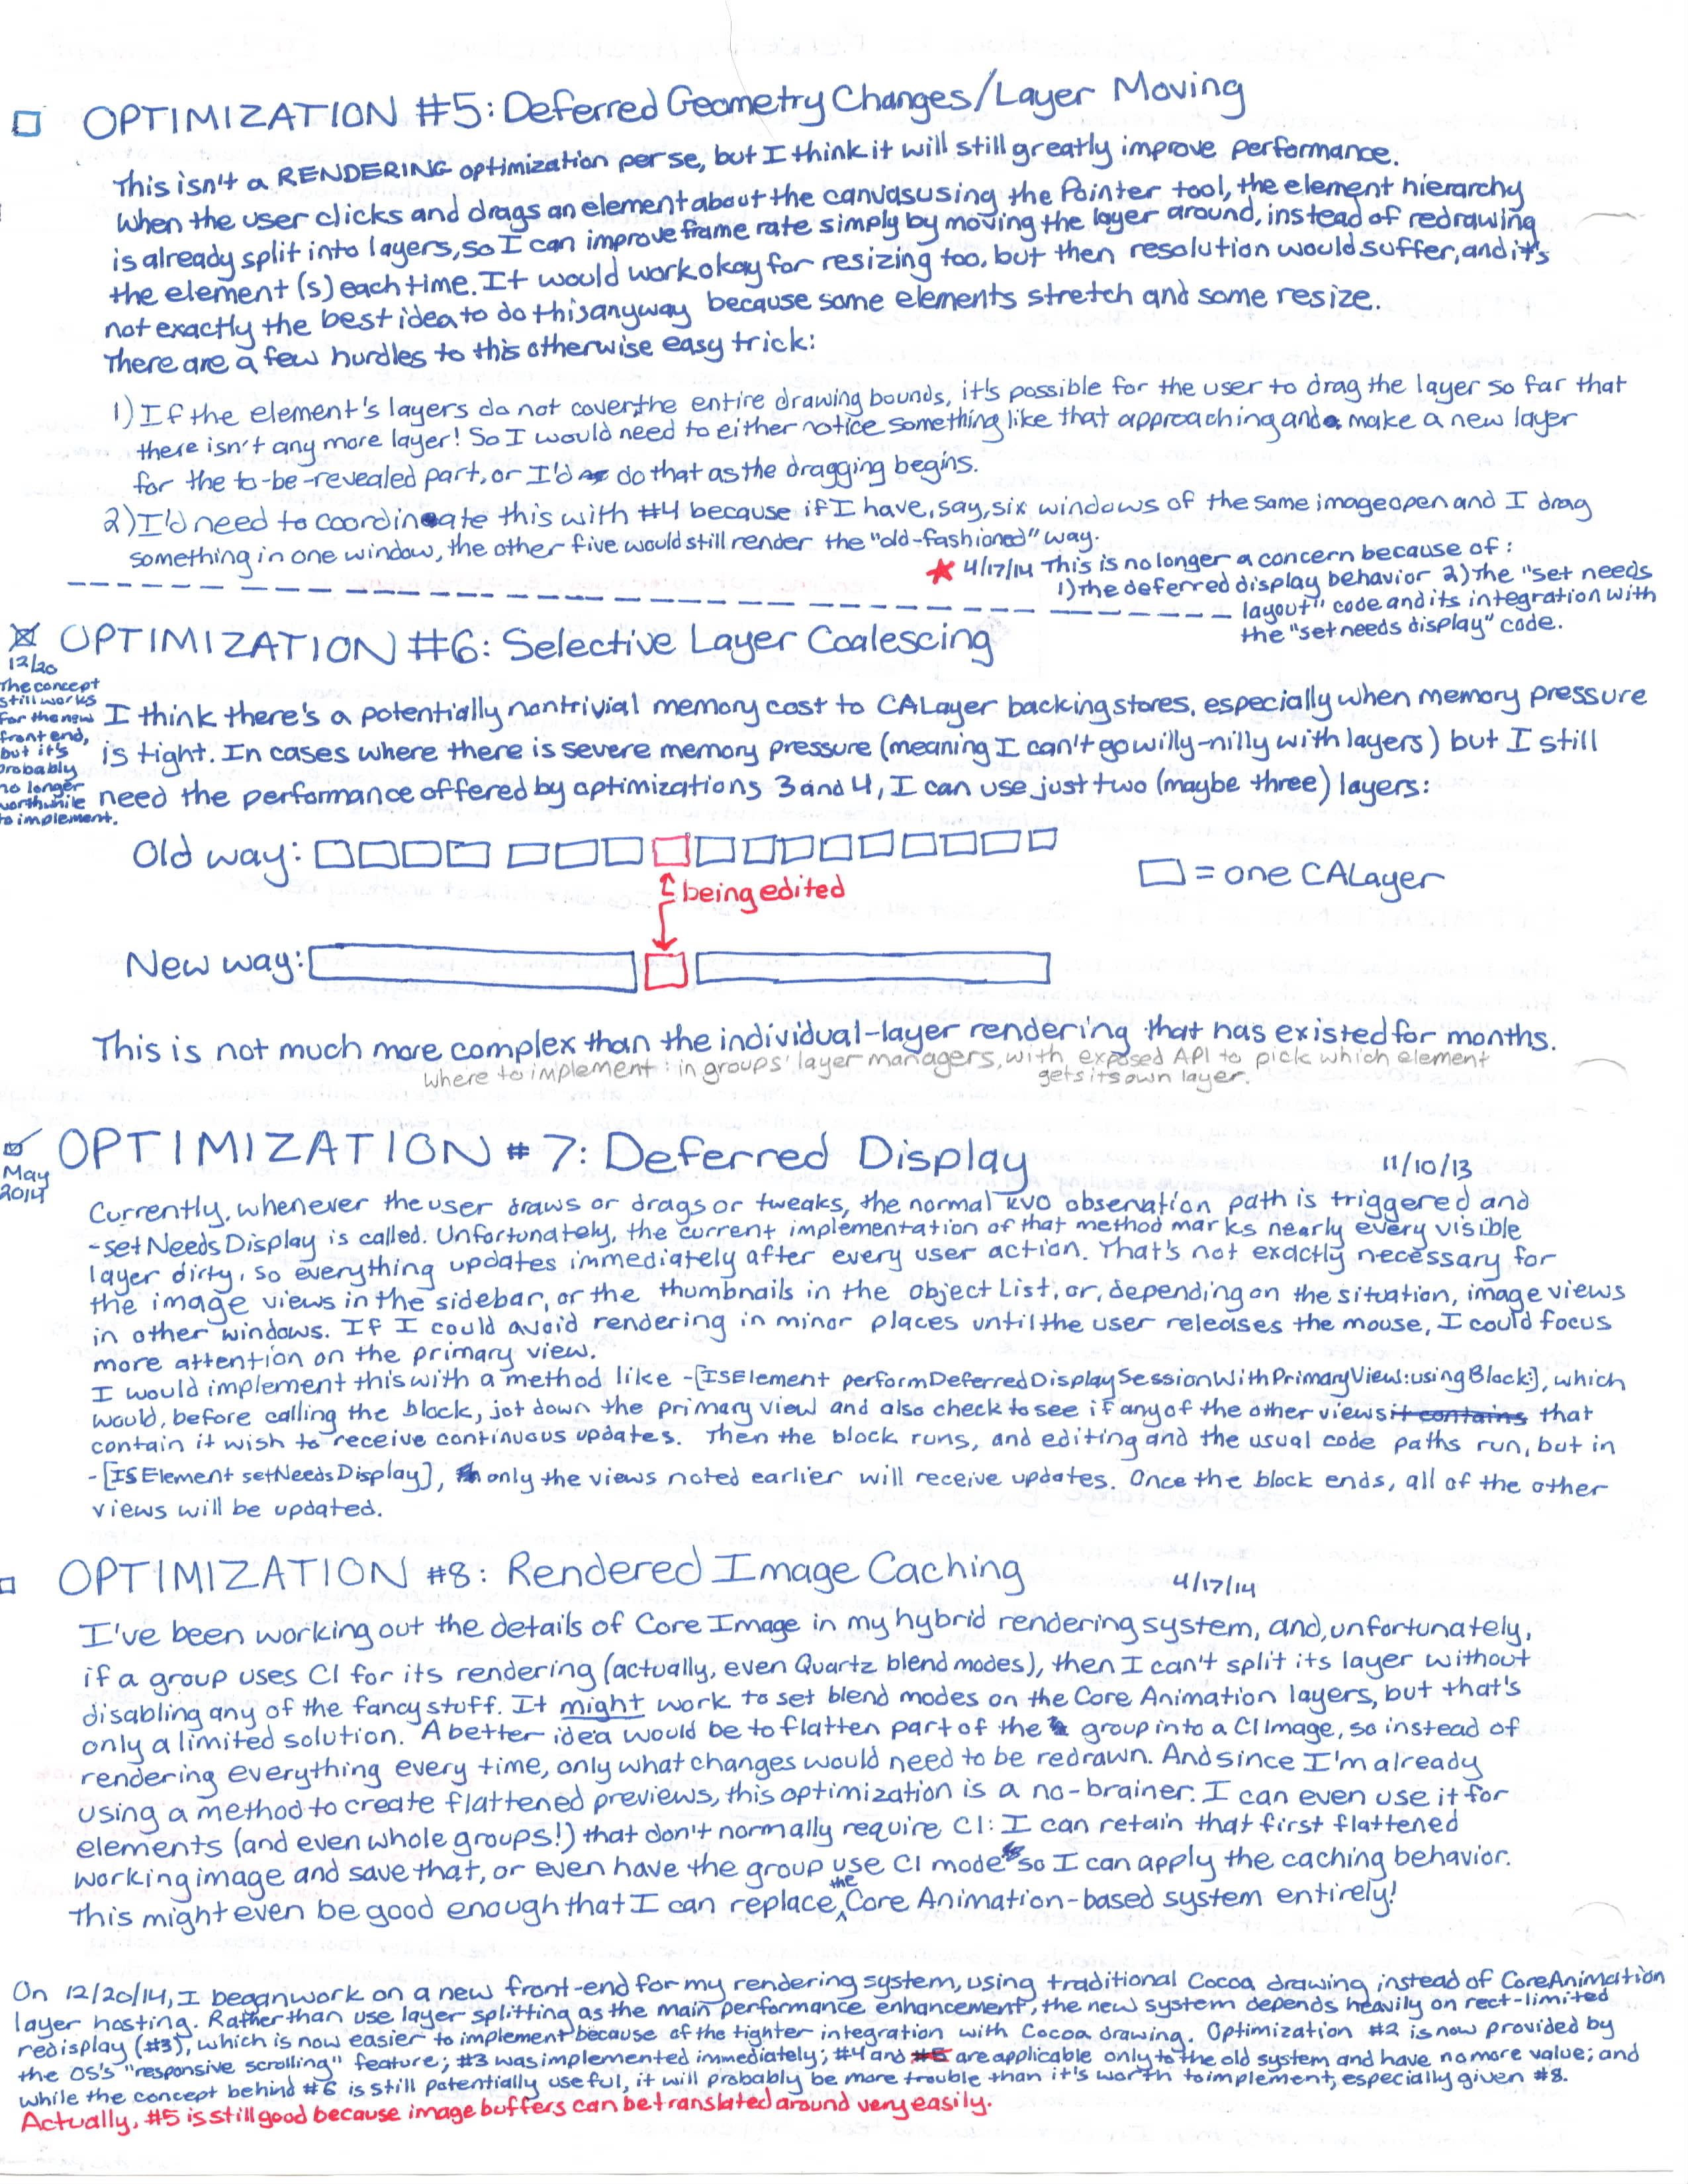 OPTIMIZATION #5: Deferred Geometry Changes/Layer Moving
This isn't a RENDERING optimization per se, but I think it will still greatly improve performance.
When the user clicks and drags an element about the canvas using the Pointer tool, the element hierarchy
is already split into layers, so I can improve frame rate simply by moving the layer around, instead of redrawing
the element(s) each time. It would work okay for resizing too, but then resolution would suffer, and it's
not exactly the best idea to do this anyway because some elements stretch and some resize.
There are a few hurdles to this otherwise easy trick:
1) If the element's layers do not cover the entire drawing bounds, it's possible for the user to drag the layer so far that
there isn't any more layer! So I would need to either notice something like that approaching and make a new layer
for the to-be-revealed part, or I'd do that as the dragging begins.
2) I'd need to coordinate this with #4 because if I have, say, six windows of the same image open and I drag
something in one window, the other five would still render the "old-fashioned" way.
★ 4/17/14 This is no longer a concern because of:
1) the deferred display behavior 2) The "set needs
layout" code and its integration with
the "set needs display" code.
OPTIMIZATION #6: Selective Layer Coalescing
12/20
The concept
still works
for the new
front end,
but it's
probably
no longer
worthwhile
to implement.
I think there's a potentially nontrivial memory cost to CALayer backing stores, especially when memory pressure
is tight. In cases where there is severe memory pressure (meaning I can't go willy-nilly with layers) but I still
need the performance offered by optimizations 3 and 4, I can use just two (maybe three) layers:
Old way:
= one CALayer
being edited
New way:
This is not much more complex than the individual-layer rendering that has existed for months.
where to implement: in groups' layer managers, with exposed API to pick which element
gets its own layer.
OPTIMIZATION #7: Deferred Display
11/10/13
May
2014
Currently, whenever the user draws or drags or tweaks, the normal KVO observation path is triggered and
-setNeedsDisplay is called. Unfortunately, the current implementation of that method marks nearly every visible
layer dirty, so everything updates immediately after every user action. That's not exactly necessary for
the image views in the sidebar, or the thumbnails in the object List, or, depending on the situation, image views
in other windows. If I could avoid rendering in minor places until the user releases the mouse, I could focus
more attention on the primary view.
I would implement this with a method like -[ISElement performDeferredDisplaySessionWithPrimaryView:usingBlock:], which
would, before calling the block, jot down the primary view and also check to see if any of the other views it contains that
contain it wish to receive continuous updates. Then the block runs, and editing and the usual code paths run, but in
-[ISElement setNeedsDisplay], only the views noted earlier will receive updates. Once the block ends, all of the other
views will be updated.
OPTIMIZATION #8: Rendered Image Caching
4/17/14
I've been working out the details of Core Image in my hybrid rendering system, and, unfortunately,
if a group uses CI for its rendering (actually, even Quartz blend modes), then I can't split its layer without
disabling any of the fancy stuff. It might work to set blend modes on the Core Animation layers, but that's
only a limited solution. A better idea would be to flatten part of the group into a CIImage, so instead of
rendering everything every time, only what changes would need to be redrawn. And since I'm already
using a method to create flattened previews, this optimization is a no-brainer. I can even use it for
elements (and even whole groups!) that don't normally require CI: I can retain that first flattened
working image and save that, or even have the group use CI mode so I can apply the caching behavior.
This might even be good enough that I can replace the Core Animation-based system entirely!
On 12/20/14, I began work on a new front-end for my rendering system, using traditional Cocoa drawing instead of CoreAnimation
layer hosting. Rather than use layer splitting as the main performance enhancement, the new system depends heavily on rect-limited
redisplay (#3), which is now easier to implement because of the tighter integration with Cocoa drawing. Optimization #2 is now provided by
the OS's "responsive scrolling" feature; #3 was implemented immediately; #4 and #5 are applicable only to the old system and have no more value; and
while the concept behind #6 is still potentially useful, it will probably be more trouble than it's worth to implement, especially given #8.
Actually, #5 is still good because image buffers can be translated around very easily.